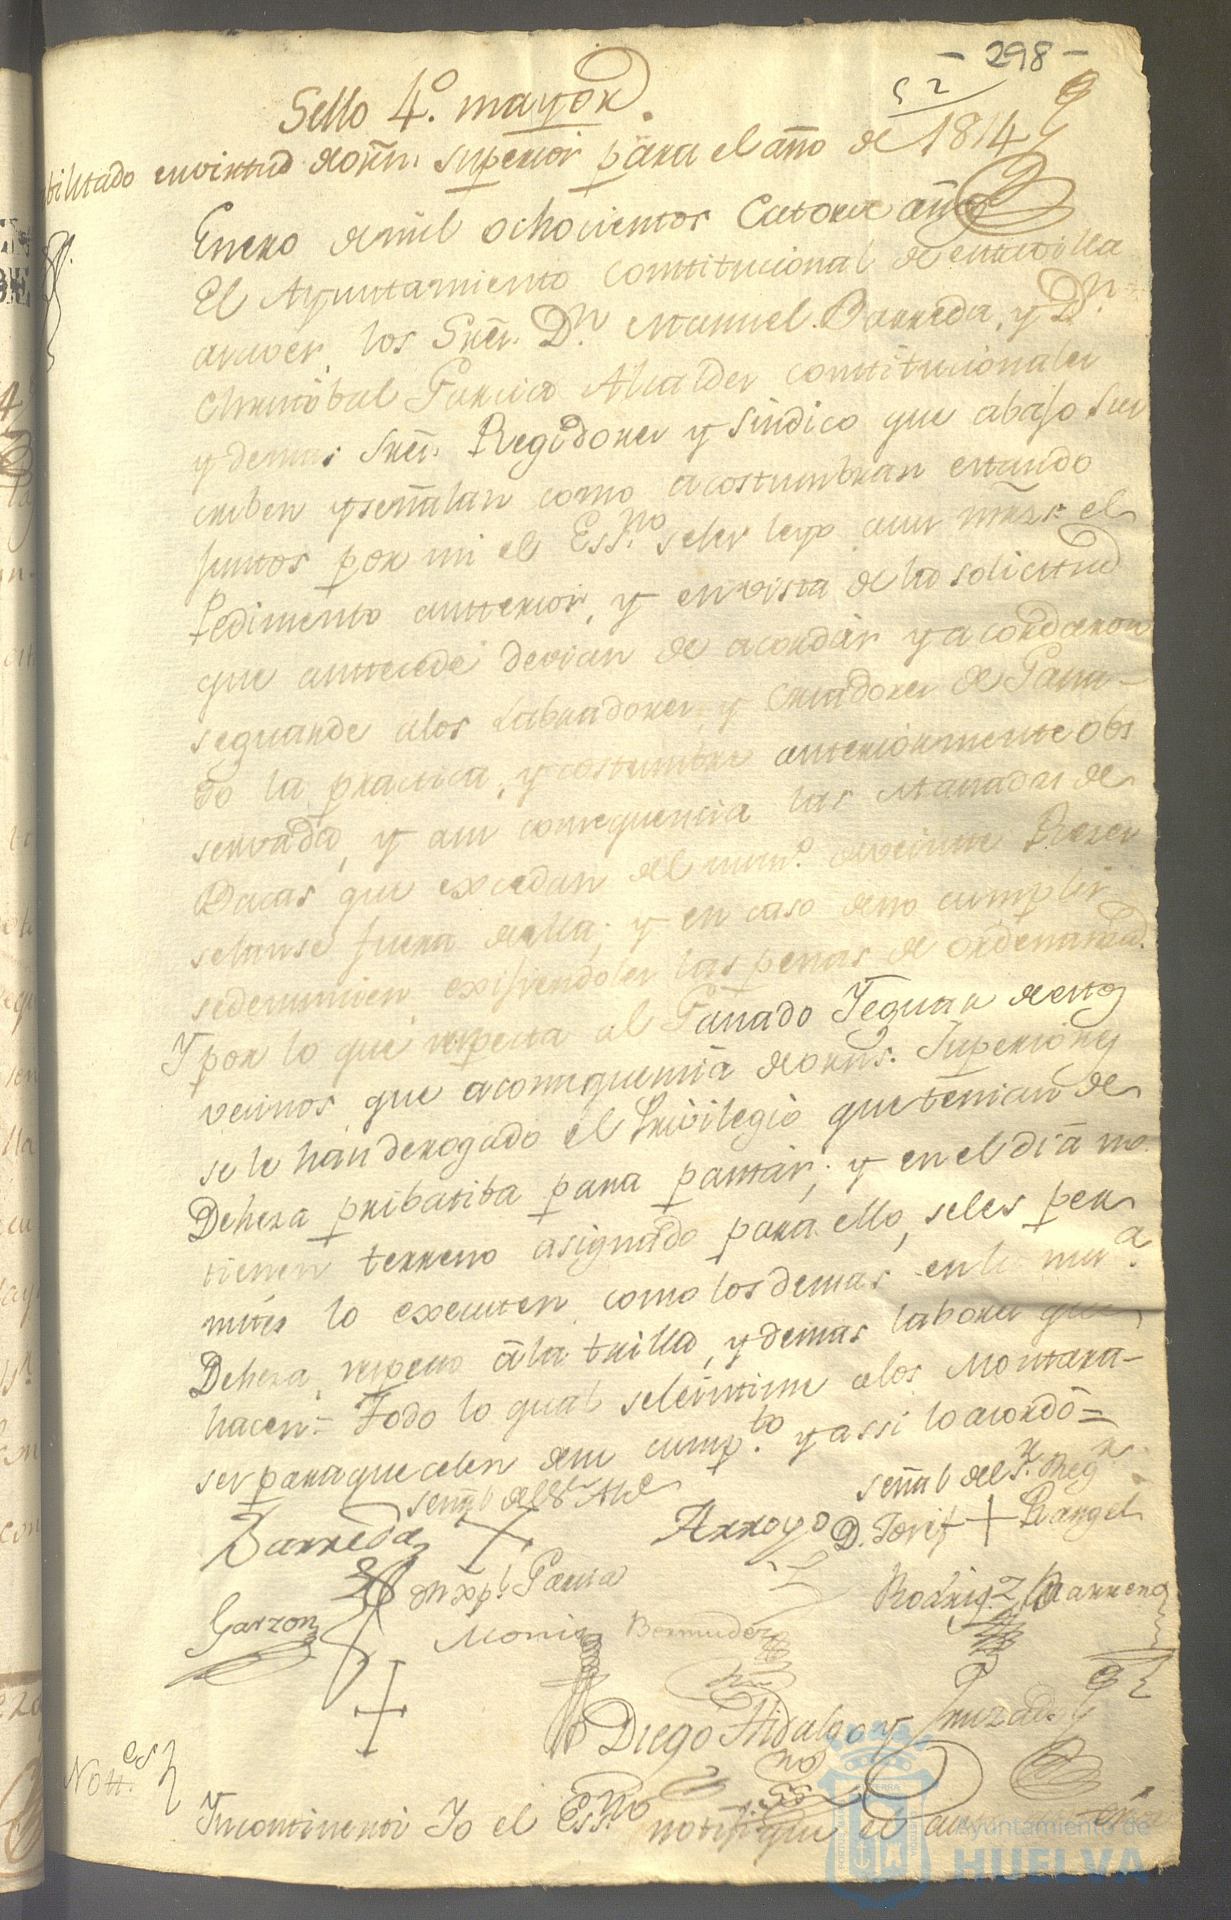 - 298 -
52
Sello 4º. mayor.
bilitado envirtud deorn. superior para el año de 1814
Enero demil ochocientos Catorce años
El Ayuntamiento Constitucional de estavilla
asaver, los Sres. Dn. Manuel Barreda, y Dn.
Christobal Garcia Alcaldes constitucionales
y demas Sres. Regidores y Sindico que abajo sus
criben yseñalan como acostumbran estando
juntos por mi el Essno. seles leyo aun mrzs. el
Pedimento antterior, y envista de lo solicitud
que anttecede devian de acordar y acordaron
seguarde alos Labradores, y Criadores de Gana-
do la practica, y costumbre anteriormente obs
servada, y asu consequencia las Manadas de
Bacas que excedan del num.º deveinte Rezes
selanse fuera della; y en caso deno cumplir
sedenuncien exisiendoles las penas de ordenanza.
Y por lo que respecta al Ganado Yeguar destos
vecinos que aconsequencia deorns. Superiores
se le han derogado el Privilegio que tenian de
Deheza pribatiba para pastar; y en el dia no
tienen terreno asignado para ello, seles per
mite lo executen como los demas en la misma
Deheza, respecto ála trilla, y demas labores que
hacen= Todo lo qual seleintime alos Montara-
ses paraque celen desu cumpto. y assi lo acordó=
señal del Sr. Alc
señal del Sr. Regr.
Barreda + Arroyo D. Josef + Rangel
Dn. Xpl. Garcia
Garzon Moriz Bermudez Rodrigz. Barreno
+
Diego Hidalgo y Cruzado
no
Essno
Nott.es
Incontinenti Yo el Essno notifique el auto
Ayuntamiento de
HUELVA